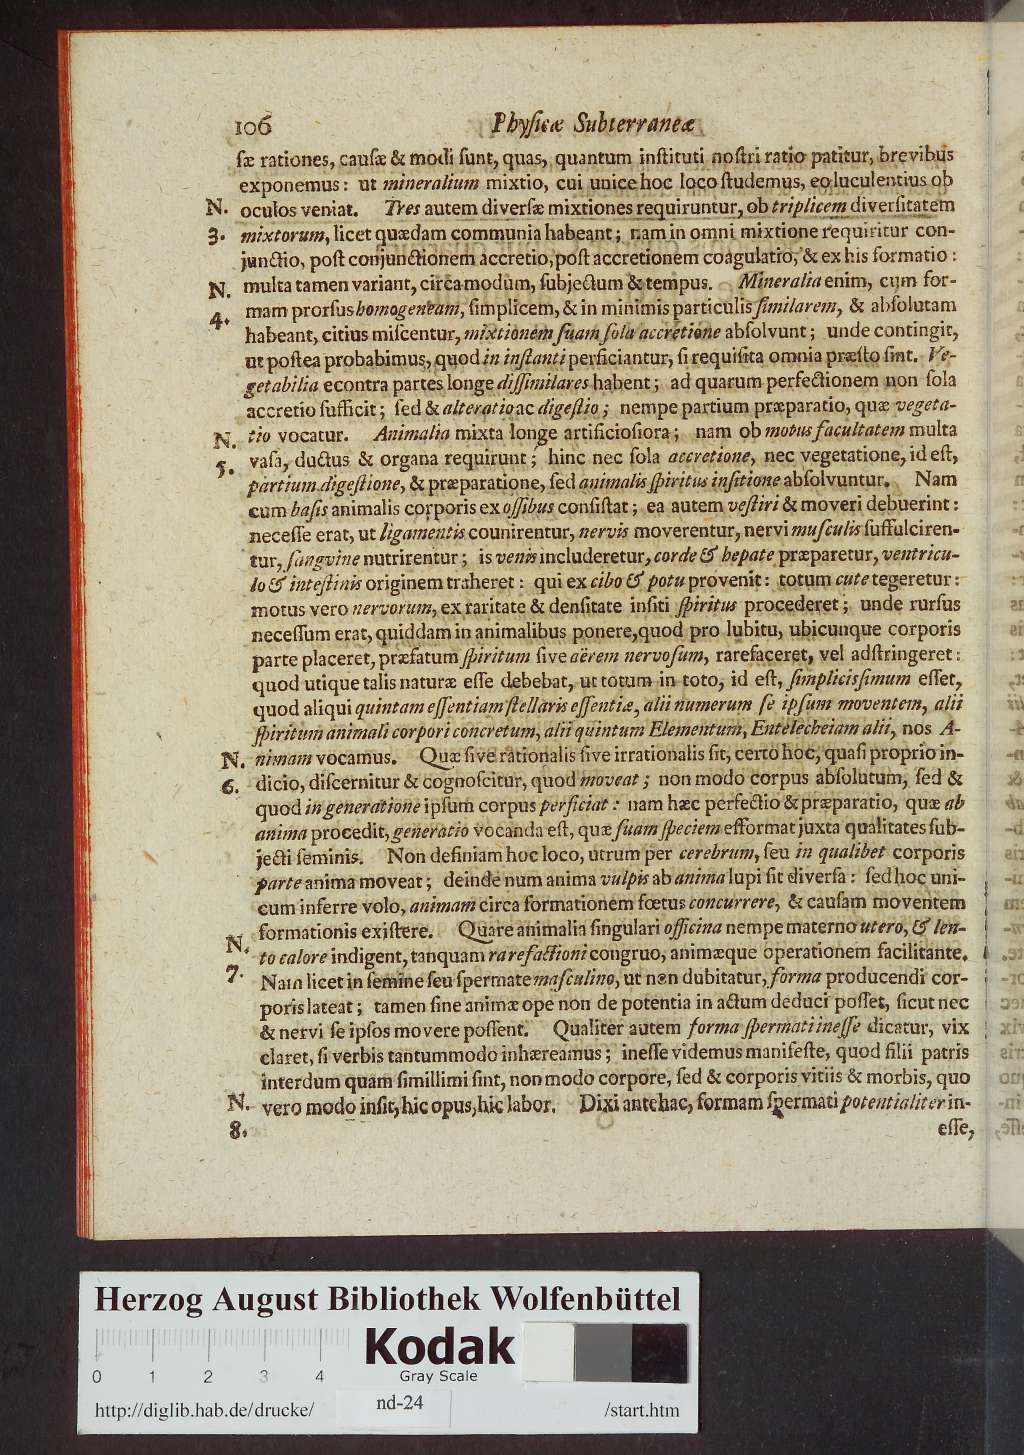 106 Physicæ Subterraneæ
ſæ rationes, cauſæ & modi ſunt, quas, quantum inſtituti noſtri ratio patitur, brevibus
exponemus: ut mineralium mixtio, cui unice hoc loco ſtudemus, eo luculentius ob
N. oculos veniat. Tres autem diverſæ mixtiones requiruntur, ob triplicem diverſitatem
3. mixtorum, licet quædam communia habeant; nam in omni mixtione requiritur con-
junctio, poſt conjunctionem accretio, poſt accretionem coagulatio, & ex his formatio:
N. multa tamen variant, circa modum, ſubjectum & tempus. Mineralia enim, cum for-
4. mam prorſus homogeneam, ſimplicem, & in minimis particulis ſimilarem, & abſolutam
habeant, citius miſcentur, mixtionem ſuam ſola accretione abſolvunt; unde contingit,
ut poſtea probabimus, quod in inſtanti perficiantur, ſi requiſita omnia præſto ſint. Ve-
getabilia econtra partes longe diſſimilares habent; ad quarum perfectionem non ſola
accretio ſufficit; ſed & alteratio ac digeſtio; nempe partium præparatio, quæ vegeta-
N. tio vocatur. Animalia mixta longe artificioſiora; nam ob motus facultatem multa
5. vaſa, ductus & organa requirunt; hinc nec ſola accretione, nec vegetatione, id eſt,
partium digeſtione, & præparatione, ſed animalis ſpiritus inſitione abſolvuntur. Nam
cum baſis animalis corporis ex oſſibus conſiſtat; ea autem veſtiri & moveri debuerint:
neceſſe erat, ut ligamentis counirentur, nervis moverentur, nervi muſculis ſuffulciren-
tur, ſangvine nutrirentur; is venis includeretur, corde & hepate præparetur, ventricu-
lo & inteſtinis originem traheret: qui ex cibo & potu provenit: totum cute tegeretur:
motus vero nervorum, ex raritate & denſitate inſiti ſpiritus procederet; unde rurſus
neceſſum erat, quiddam in animalibus ponere, quod pro lubitu, ubicunque corporis
parte placeret, præfatum ſpiritum ſive aërem nervoſum, rarefaceret, vel adſtringeret:
quod utique talis naturæ eſſe debebat, ut totum in toto, id eſt, ſimplicisſimum eſſet,
quod aliqui quintam eſſentiam ſtellaris eſſentiæ, alii numerum ſe ipſum moventem, alii
ſpiritum animali corpori concretum, alii quintum Elementum, Entelecheiam alii, nos A-
N. nimam vocamus. Quæ ſive rationalis ſive irrationalis ſit, certo hoc, quaſi proprio in-
6. dicio, diſcernitur & cognoſcitur, quod moveat; non modo corpus abſolutum, ſed &
quod in generatione ipſum corpus perficiat: nam hæc perfectio & præparatio, quæ ab
anima procedit, generatio vocanda eſt, quæ ſuam ſpeciem efformat juxta qualitates ſub-
jecti ſeminis. Non definiam hoc loco, utrum per cerebrum, ſeu in qualibet corporis
parte anima moveat; deinde num anima vulpis ab anima lupi ſit diverſa: ſed hoc uni-
cum inferre volo, animam circa formationem fœtus concurrere, & cauſam moventem
formationis exiſtere. Quare animalia ſingulari officina nempe materno utero, & len-
N. to calore indigent, tanquam rarefactioni congruo, animæque operationem facilitante.
7. Nam licet in ſemine ſeu ſpermate maſculino, ut non dubitatur, forma producendi cor-
poris lateat; tamen ſine animæ ope non de potentia in actum deduci poſſet, ſicut nec
& nervi ſe ipſos movere poſſent. Qualiter autem forma ſpermati ineſſe dicatur, vix
claret, ſi verbis tantummodo inhæreamus; ineſſe videmus manifeſte, quod filii patris
interdum quam ſimillimi ſint, non modo corpore, ſed & corporis vitiis & morbis, quo
N. vero modo inſit, hic opus, hic labor. Dixi antehac, formam ſpermati potentialiter in-
8. eſſe,
Herzog August Bibliothek Wolfenbüttel
Kodak
0 1 2 3 4 Gray Scale
http://diglib.hab.de/drucke/ nd-24 /start.htm